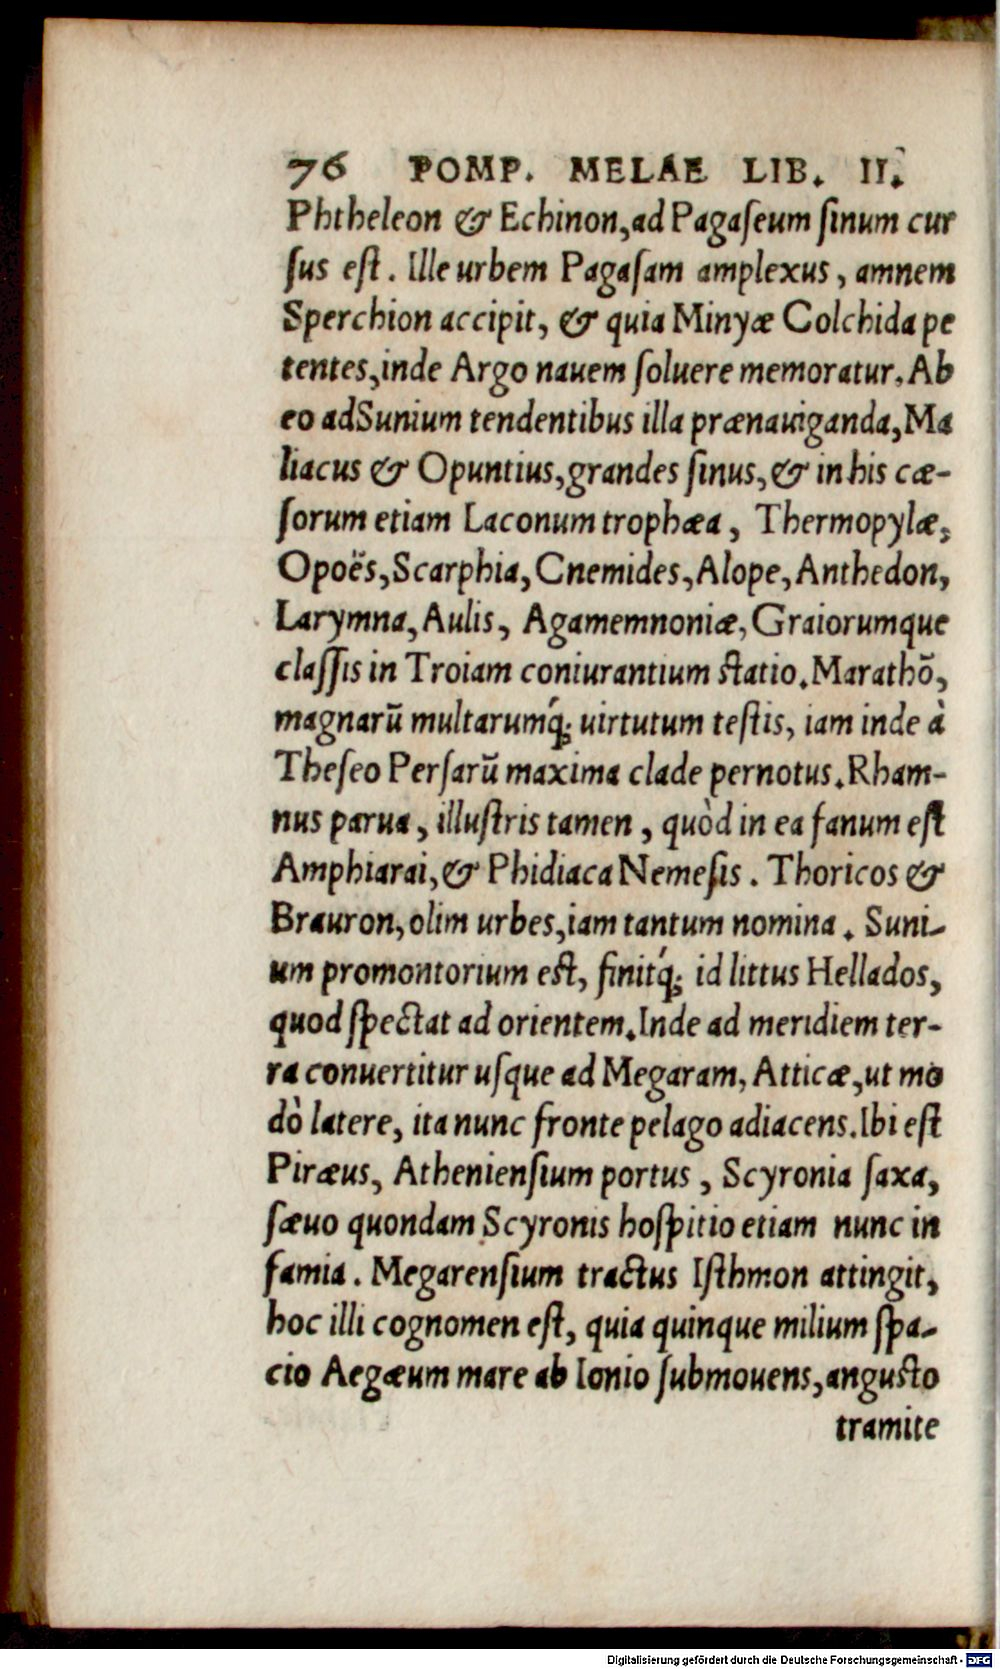 76 POMP. MELAE LIB. II.
Phtheleon & Echinon, ad Pagaseum sinum cur
sus est. Ille urbem Pagasam amplexus, amnem
Sperchion accipit, & quia Minyæ Colchida pe
tentes, inde Argo nauem soluere memoratur. Ab
eo ad Sunium tendentibus illa prænauiganda, Ma
liacus & Opuntius, grandes sinus, & in his cæ-
sorum etiam Laconum trophæa, Thermopylæ,
Opoës, Scarphia, Cnemides, Alope, Anthedon,
Larymna, Aulis, Agamemnoniæ, Graiorumque
classis in Troiam coniurantium statio. Marathō,
magnarū multarumq́; uirtutum testis, iam inde à
Theseo Persarū maxima clade pernotus. Rham-
nus parua, illustris tamen, quòd in ea fanum est
Amphiarai, & Phidiaca Nemesis. Thoricos &
Brauron, olim urbes, iam tantum nomina. Suni-
um promontorium est, finitq́; id littus Hellados,
quod spectat ad orientem. Inde ad meridiem ter-
ra conuertitur usque ad Megaram, Atticæ, ut mo
dò latere, ita nunc fronte pelago adiacens. Ibi est
Piræus, Atheniensium portus, Scyronia saxa,
sæuo quondam Scyronis hospitio etiam nunc in
famia. Megarensium tractus Isthmon attingit,
hoc illi cognomen est, quia quinque milium spa-
cio Aegæum mare ab Ionio submouens, angusto
tramite
Digitalisierung gefördert durch die Deutsche Forschungsgemeinschaft - DFG